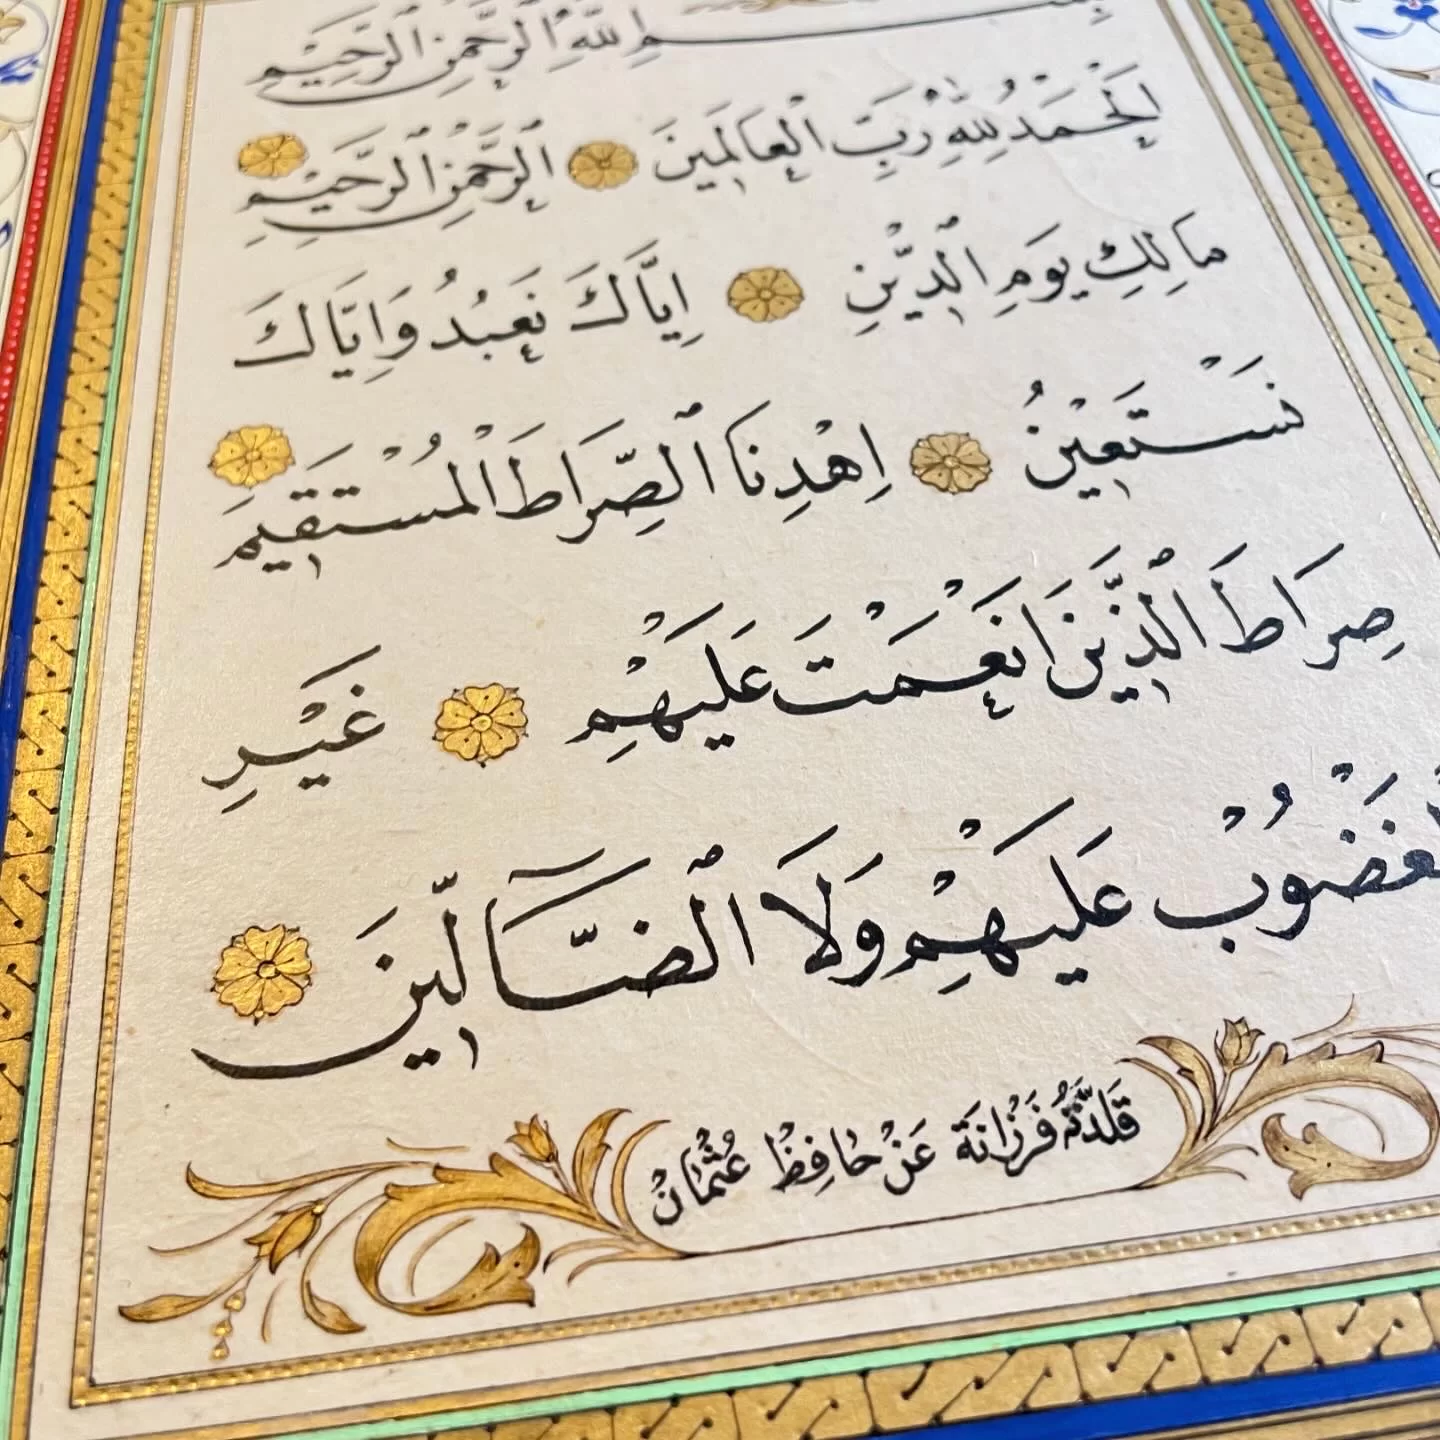 بِسْمِ اللّٰهِ الرَّحْمٰنِ الرَّحِيمِ
اَلْحَمْدُ لِلّٰهِ رَبِّ الْعَالَمِينَ الرَّحْمٰنِ الرَّحِيمِ
مَالِكِ يَوْمِ الدِّينِ اِيَّاكَ نَعْبُدُ وَاِيَّاكَ
نَسْتَعِينُ اِهْدِنَا الصِّرَاطَ الْمُسْتَقِيمَ
صِرَاطَ الَّذِينَ اَنْعَمْتَ عَلَيْهِمْ غَيْرِ
الْمَغْضُوبِ عَلَيْهِمْ وَلَا الضَّالِّينَ
قَلَّدَتْهُ فَرْزَانَة عَنْ حَافِظْ عُثْمَانْ